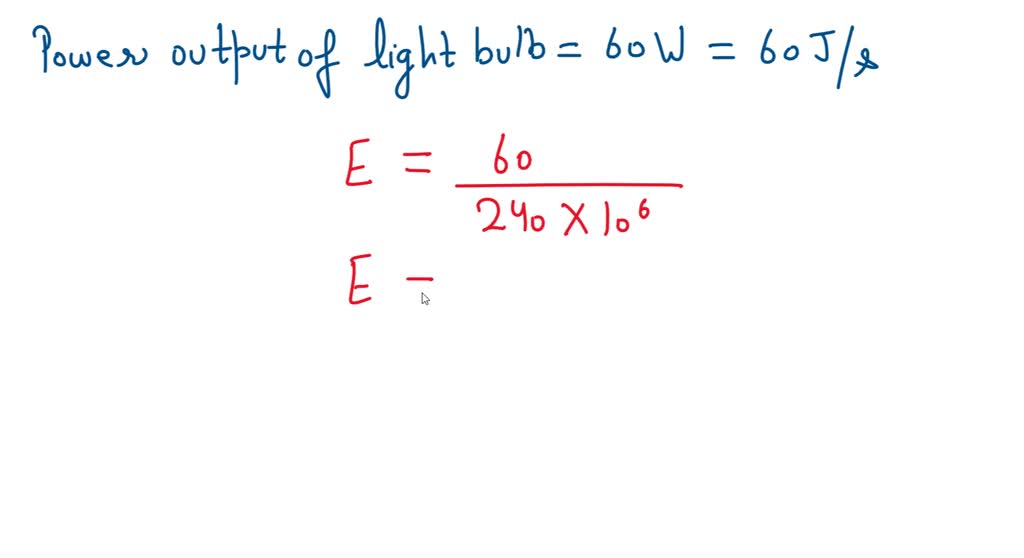 Power output of light bulb = 60 W = 60 J/s
E = 60 / 240 X 10⁶
E –